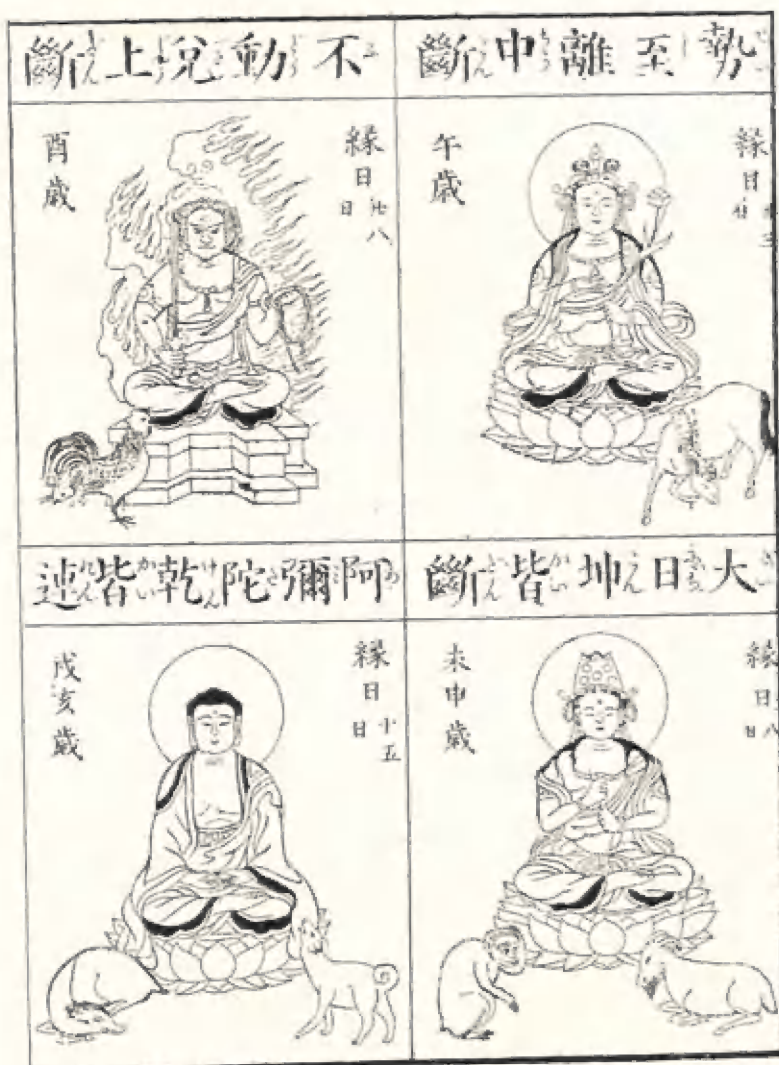 勢至離中斷
緣日廿三日
午歳
不動兌上斷
緣日廿八日
酉歳
大日坤皆斷
緣日八日
未申歳
阿彌陀乾皆連
緣日十五日
戌亥歳